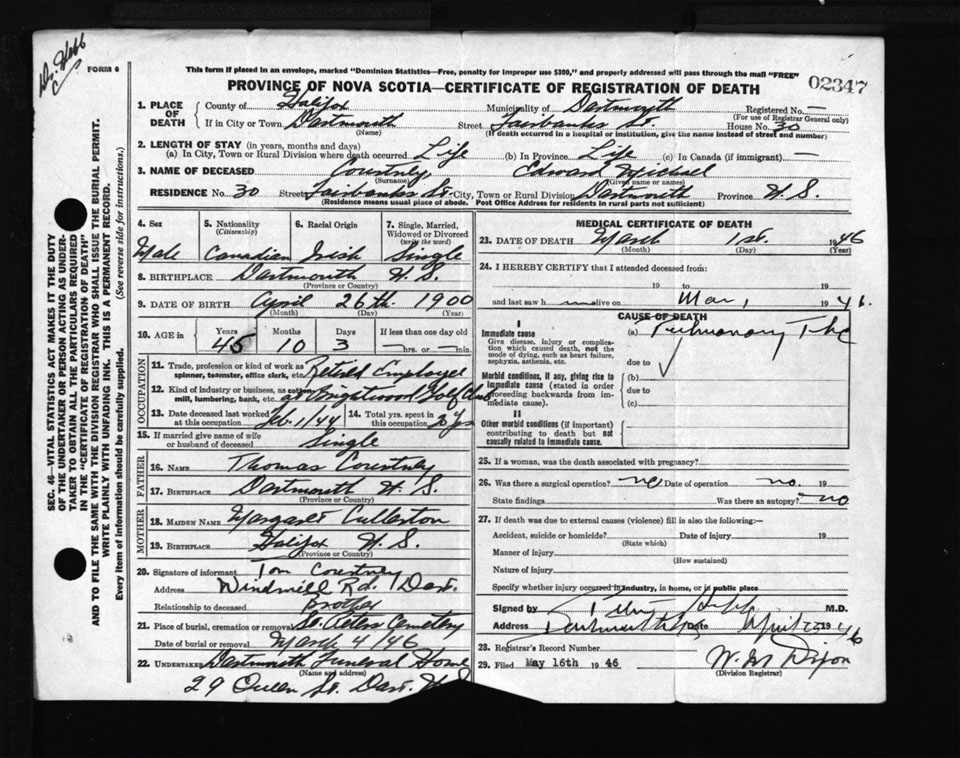 Dr. Hebb
FORM 6
This form if placed in an envelope, marked "Dominion Statistics—Free, penalty for improper use $300," and properly addressed will pass through the mail "FREE"
02347
PROVINCE OF NOVA SCOTIA—CERTIFICATE OF REGISTRATION OF DEATH
1. PLACE OF DEATH
County of Halifax Municipality of Dartmouth Registered No. —
(For use of Registrar General only)
If in City or Town Dartmouth Street Fairbanks St. House No. 30
(Name) (If death occurred in a hospital or institution, give the name instead of street and number)
2. LENGTH OF STAY (in years, months and days)
(a) In City, Town or Rural Division where death occurred Life (b) In Province Life (c) In Canada (if immigrant) —
3. NAME OF DECEASED Courtney, Edward Michael
(Surname) (Given name or names)
RESIDENCE No. 30 Street Fairbanks St. City, Town or Rural Division Dartmouth Province N.S.
(Residence means usual place of abode. Post Office Address for residents in rural parts not sufficient)
4. Sex 5. Nationality (Citizenship) 6. Racial Origin 7. Single, Married, Widowed or Divorced (write the word)
Male Canadian Irish Single
8. BIRTHPLACE Dartmouth N.S.
(Province or Country)
9. DATE OF BIRTH April 26th. 1900
(Month) (Day) (Year)
10. AGE in Years Months Days If less than one day old
45 10 3 —hrs. or —min.
OCCUPATION
11. Trade, profession or kind of work as spinner, teamster, office clerk, etc. Retired Employee
12. Kind of industry or business, as cotton mill, lumbering, bank, etc. at Brightwood Golf Club
13. Date deceased last worked at this occupation Feb. 1/44 14. Total yrs. spent in this occupation 20 yrs
15. If married give name of wife or husband of deceased Single
FATHER
16. NAME Thomas Courtney
17. BIRTHPLACE Dartmouth N.S.
(Province or Country)
MOTHER
18. MAIDEN NAME Margaret Cullerton
19. BIRTHPLACE Halifax N.S.
(Province or Country)
20. Signature of informant Tom Courtney
Address Windmill Rd. Dart.
Relationship to deceased brother
21. Place of burial, cremation or removal St. Peters Cemetery
Date of burial or removal March 4/46
22. UNDERTAKER Dartmouth Funeral Home
(Name and address)
29 Queen St. Dart. N.S.
MEDICAL CERTIFICATE OF DEATH
23. DATE OF DEATH March 1st. 1946
(Month) (Day) (Year)
24. I HEREBY CERTIFY that I attended deceased from:
19 to 19
and last saw h im alive on Mar 1 1946.
CAUSE OF DEATH
I
Immediate cause (a) Pulmonary Tbc
Give disease, injury or complication which caused death, not the mode of dying, such as heart failure, asphyxia, asthenia, etc.
due to
Morbid conditions, if any, giving rise to immediate cause (stated in order proceeding backwards from immediate cause).
(b)
due to
(c)
II
Other morbid conditions (if important) contributing to death but not causally related to immediate cause.
25. If a woman, was the death associated with pregnancy?
26. Was there a surgical operation? no Date of operation no. 19
State findings Was there an autopsy? no
27. If death was due to external causes (violence) fill in also the following:—
Accident, suicide or homicide? Date of injury 19
(State which)
Manner of injury
(How sustained)
Nature of injury
Specify whether injury occurred in industry, in home, or in public place
Signed by Hebb M.D.
Address Dartmouth N.S. Date April 22 1946
28. Registrar's Record Number
29. Filed May 16th 1946 W. M. Dixon
(Division Registrar)
SEC. 46—VITAL STATISTICS ACT MAKES IT THE DUTY
OF THE UNDERTAKER OR PERSON ACTING AS UNDER-
TAKER TO OBTAIN ALL THE PARTICULARS REQUIRED
IN THE "CERTIFICATE OF REGISTRATION OF DEATH"
AND TO FILE THE SAME WITH THE DIVISION REGISTRAR WHO SHALL ISSUE THE BURIAL PERMIT.
WRITE PLAINLY WITH UNFADING INK. THIS IS A PERMANENT RECORD.
Every item of information should be carefully supplied. (See reverse side for instructions.)